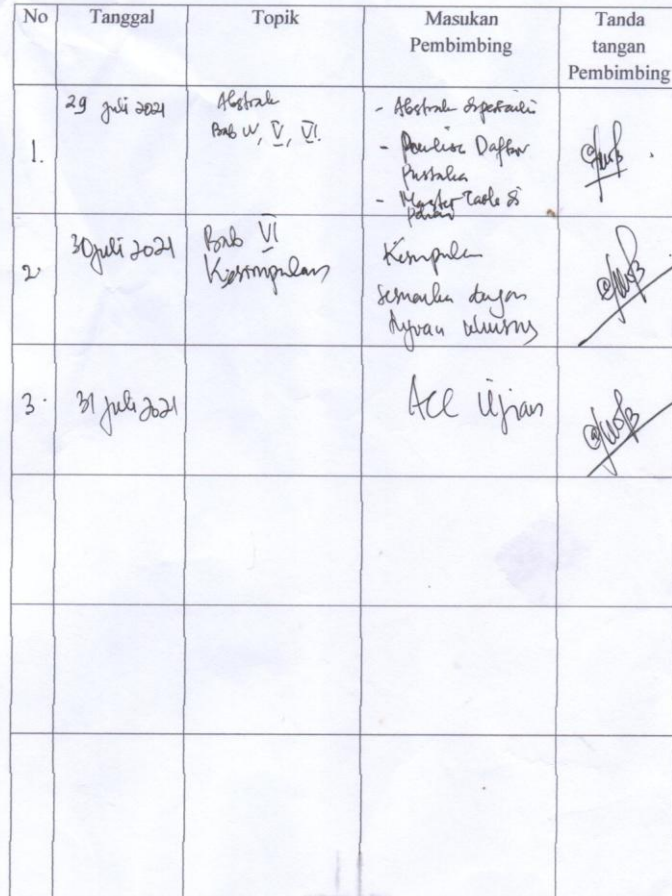 No Tanggal Topik Masukan Pembimbing Tanda tangan Pembimbing
1. 29 Juli 2021
Abstrak
Bab IV, V, VI.
- Abstrak diperbaiki
- Penulisan Daftar
Pustaka
- Master Table di
2 30 Juli 2021
Bab VI
Kesimpulan
Kesimpulan
Sesuaikan dengan
Tujuan khusus
3. 31 Juli 2021
ACC Ujian